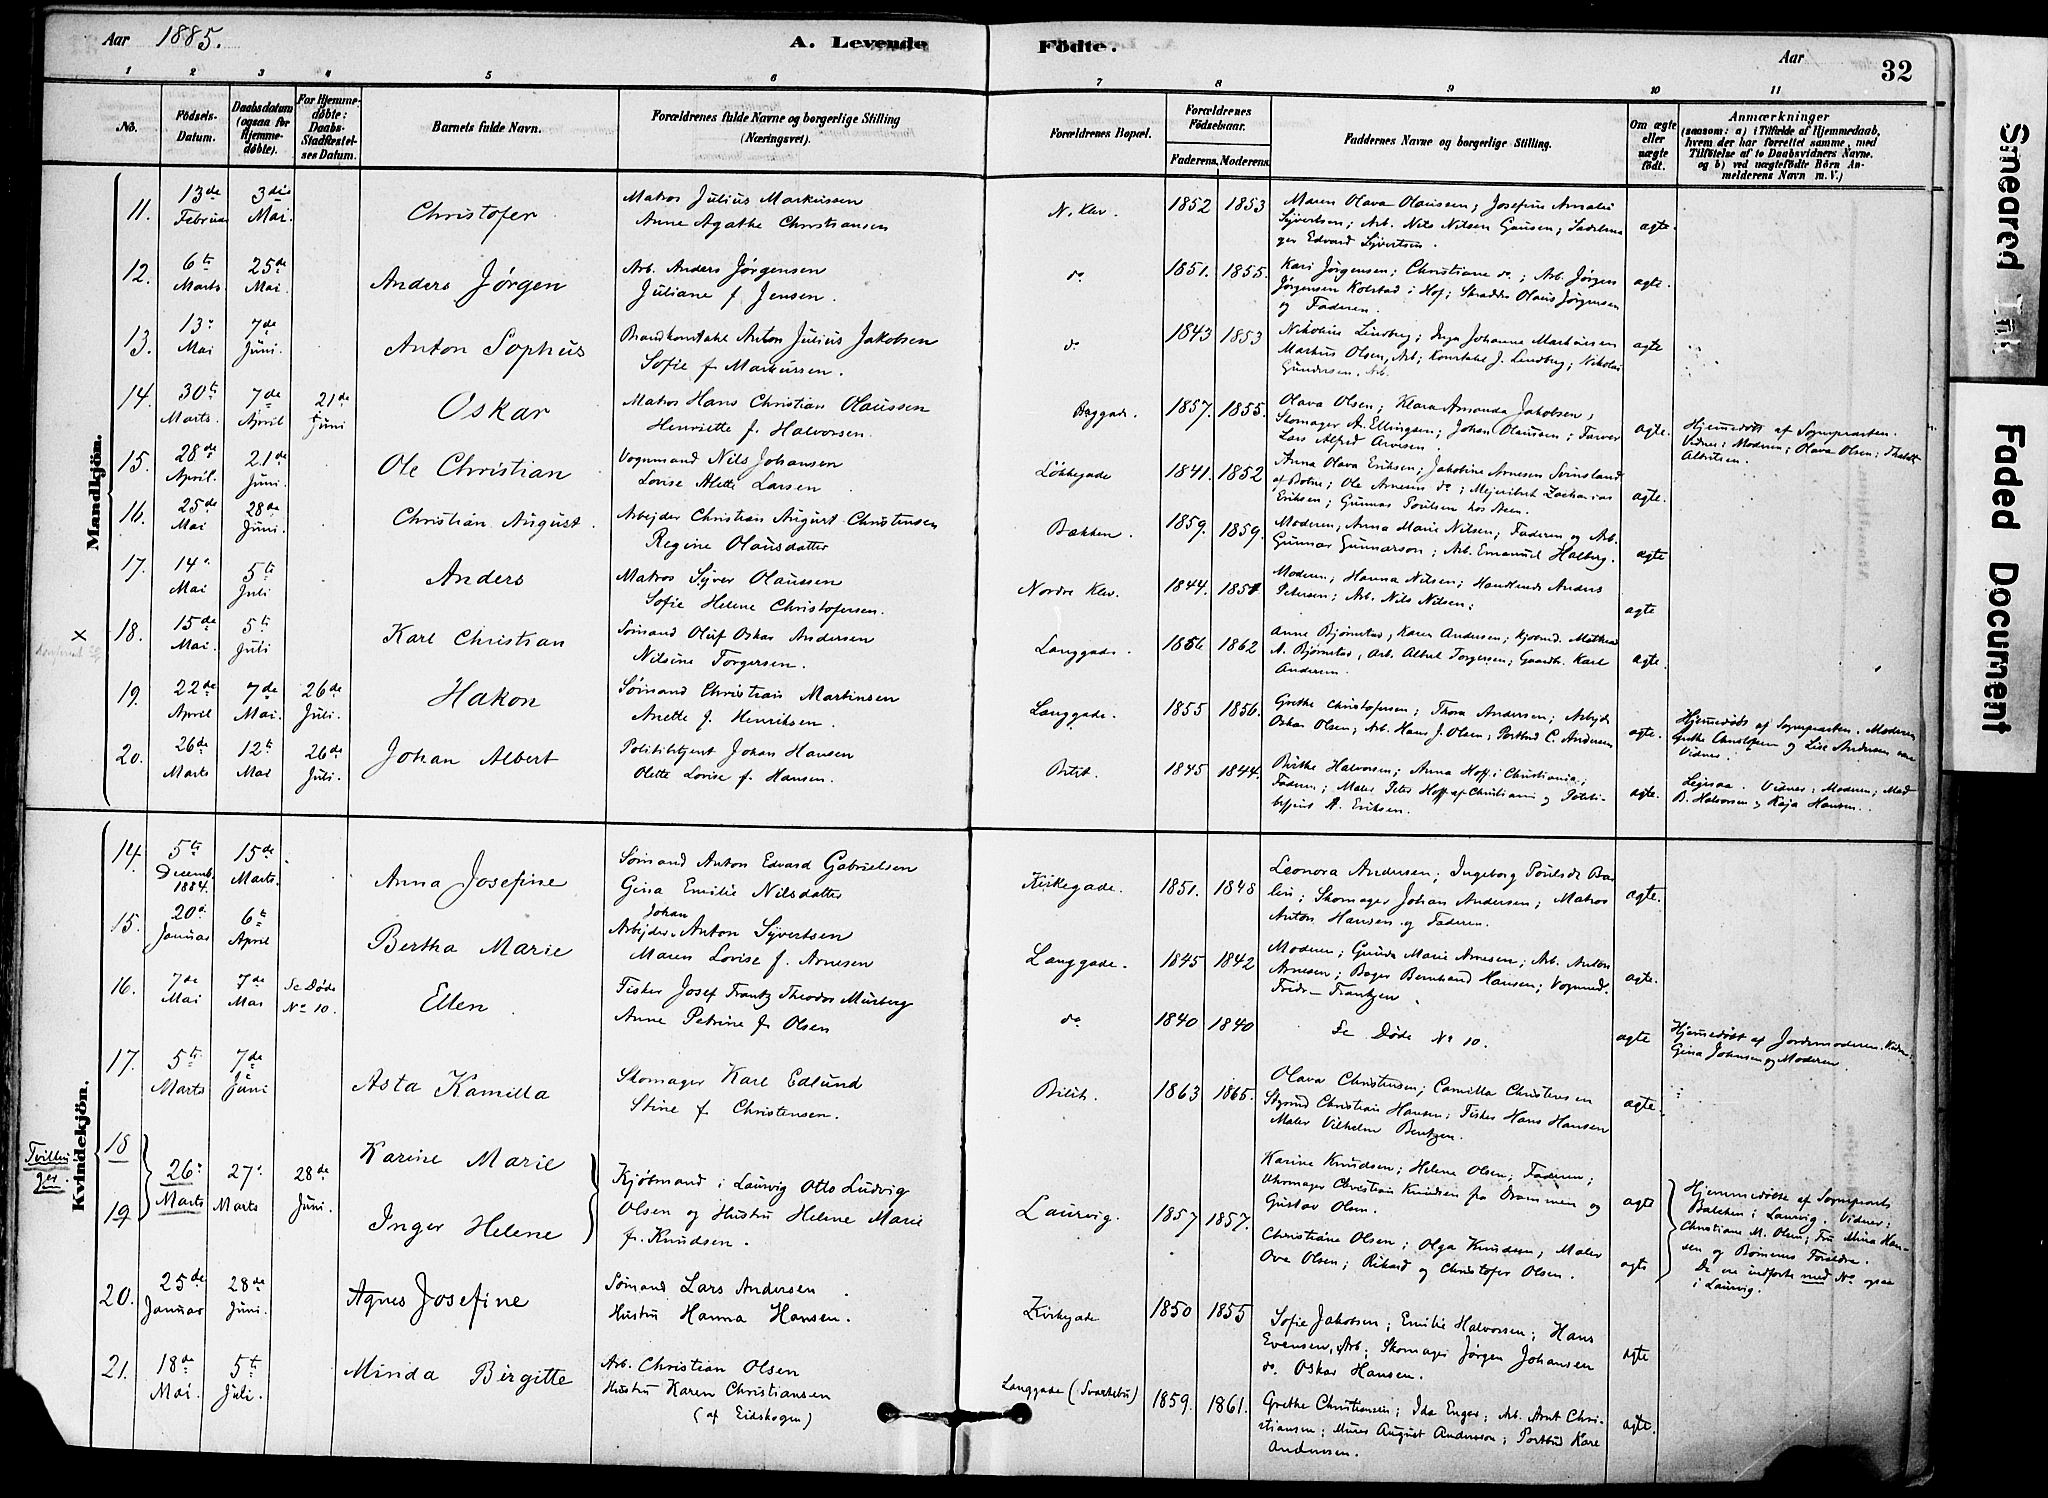 Aar 1885.
A. Levende Födte.
Aar
32
1 2 3 4 5 6 7 8 9 10 11
No.
Födsels-Datum.
Daabsdatum (ogsaa for Hjemme-döbte).
For Hjemme-döbte: Daabs-Stadfæstel-ses Datum.
Barnets fulde Navn.
Forældrenes fulde Navne og borgerlige Stilling (Næringsvei).
Forældrenes Bopæl.
Forældrenes Födselsaar.
Faderens. Moderens.
Faddernes Navne og borgerlige Stilling.
Om ægte eller uægte födt.
Anmærkninger
(saasom: a) i Tilfælde af Hjemmedaab, hvem der har forrettet samme, med Tilföielse af to Daabsvidners Navne. og b) ved uægtefödte Börn An-melderens Navn m. V.)
Mandkjön.
11. 13de Februar 3die Mai. Christofer
Matros Julius Markussen
Anne Agathe Christiansen
N. Klev 1852 1853
Maren Olava Olaussen; Josefine Amalie
Syvertsen; Arb. Nils Nilsen Gausen; Sadelma
ger Edvard Syvertsen.
ægte.
12. 6te Marts. 25de Mai. Anders Jørgen
Arb. Anders Jørgensen
Juliane f. Jensen.
do 1851. 1855.
Kari Jørgensen; Christiane do.; Arb. Jørgen
Jørgensen Kolstad i Hof; Skrædder Olaus Jørgensen
og Faderen.
ægte.
13. 13de Mai 7de Juni. Anton Sophus
Brandkonstabel Anton Julius Jakobsen
Sofie f. Markussen.
do 1843 1853
Nikoline Lindberg; Inga Johanne Markussen
Markus Olsen, Arb; Konstabel J. Lindberg; Nikolai
Gundersen, Arb.
ægte
14. 30te Marts. 7de April 21de Juni Oskar
Matros Hans Christian Olaussen
Henriette f. Halvorsen.
Baggade. 1857. 1855.
Olava Olsen; Klara Amanda Jakobsen;
Skomager A. Ellingsen; Johan Olaussen; Farver
Lars Alfred Arvesen.
ægte.
Hjemmedøbt af Sognepræsten.
Vidner: Moderen; Olava Olsen;
Albertsen.
15. 28de April. 21de Juni. Ole Christian
Vognmand Nils Johansen
Lovise Alette Larsen
Løkkegade 1841. 1852
Anna Olava Eriksen; Jakobine Arnesen Svinsland
af Botne; Ole Arnesen do; Mejeribest. Zacharias
Eriksen; Gunnar Poulsen hos Steen.
ægte.
16. 25de Mai 28de Juni. Christian August.
Arbejder Christian August Christensen
Regine Olausdatter
Bækken. 1859. 1859.
Moderen; Anna Marie Nilsen; Faderen og Arb.
Gunnar Gunnarson; Arb. Emanuel Halberg.
ægte
17. 14de Mai 5te Juli Anders
Matros Syver Olaussen
Sofie Helene Christofersen.
Nordre Klev. 1844. 1851
Moderen; Hanna Nilsen; Handlende Anders
Petersen; Arb. Nils Nilsen;
ægte
×
18. 15de Mai. 5te Juli Karl Christian
Sømand Oluf Oskar Andersen
Nilsine Torgersen.
Langgade. 1856 1862
Anne Bjørnstad; Karen Andersen; Kjøbmd. Mathias
A. Bjørnstad; Arb. Albert Torgersen; Gaardb. Karl
Andersen.
ægte.
19. 22de April 7de Mai. 26de Juli. Hakon
Sømand Christian Martinsen
Anette f. Henriksen.
Langgade. 1855 1856.
Grethe Christofersen; Thora Andersen; Arbejder
Oskar Olsen; Arb. Hans J. Olsen; Postbud C. Andersen
ægte.
Hjemmedøbt af Sognepræsten. Moderen
Grethe Christofersen og Lise Andersen vare
Vidner.
20. 26de Marts 12te Mai 26de Juli. Johan Albert
Politibetjent Johan Hansen
Olette Lovise f. Hansen.
Bilit. 1845 1844.
Birthe Halvorsen; Anna Hoff i Christiania;
Faderen; Maler Peter Hoff af Christiania og Politi-
betjent A. Eriksen.
ægte.
Ligesaa. Vidner: Moderen; Mad.
B. Halvorsen og Kaja Hansen.
Kvindekjön.
14. 5te Decemb. 1884. 15de Marts. Anna Josefine
Sømand Anton Edvard Gabrielsen
Gina Emilie Nilsdatter
Kirkegade. 1851. 1848
Leonora Andersen; Ingeborg Poulsdr. Bær
lin; Skomager Johan Andersen; Matros
Anton Hansen og Faderen.
ægte.
15. 20de Januar 6te April Bertha Marie
Arbejder Johan Anton Syvertsen
Maren Lovise f. Arnesen
Langgade. 1845 1842
Moderen; Gunda Marie Arnesen; Arb. Anton
Arnesen; Bager Bernhard Hansen; Vognmd.
Fredr. Frantzen.
ægte.
16. 7de Mai 7de Mai Se Døde No 10. Ellen
Fisker Josef Frantz Theodor Murberg
Anne Petrine f. Olsen
do 1840 1840
Se Døde No 10.
ægte
Hjemmedøbt af Jordmoderen. Vidner
Gina Johnsen og Moderen.
17. 5te Marts 7de Juni Asta Kamilla
Skomager Karl Edlund
Stine f. Christensen.
Bilit. 1863 1865.
Olava Christensen; Camilla Christensen
Styrmd Christian Hansen; Fisker Hans Hansen
Maler Vilhelm Bentzen.
ægte.
Tvillin
ger.
18 Karine Marie
26de Marts 27de Marts 28de Juni.
19 Inger Helene
Kjøbmand i Laurvig Otto Ludvig
Olsen og Hustru Helene Marie
f. Knudsen.
Laurvig. 1857 1857.
Karine Knudsen; Helene Olsen; Faderen;
Uhrmager Christian Knudsen fra Drammen og
Gustav Olsen.
ægte
Christiane Olsen; Olga Knudsen; Maler
Ove Olsen; Rikard og Christofer Olsen.
ægte
Hjemmedøbte af Sognepræst
Balchen i Laurvig. Vidner:
Christiane M. Olsen; Fru Mina Han-
sen og Børnenes Forældre.
De ere indførte med No ogsaa
i Laurvig.
20. 25de Januar 28de Juni. Agnes Josefine
Sømand Lars Andersen
Hustru Hanna Hansen.
Kirkegade 1850 1855
Sofie Jakobsen; Emilie Halvorsen; Hans
Evensen, Arb; Skomager Jørgen Johansen
do. Oskar Hansen.
ægte
21. 18de Mai. 5te Juli. Minda Birgitte
Arb. Christian Olsen
Hustru Karen Christiansen
(af Eidskogen)
Langgade (Svartebu) 1859. 1861.
Grethe Christiansen; Ida Enger; Arb. Arnt Chri-
stiansen; Murer August Andersson; Postbud Karl
Andersen.
ægte.
Smeared Ink
Faded Document